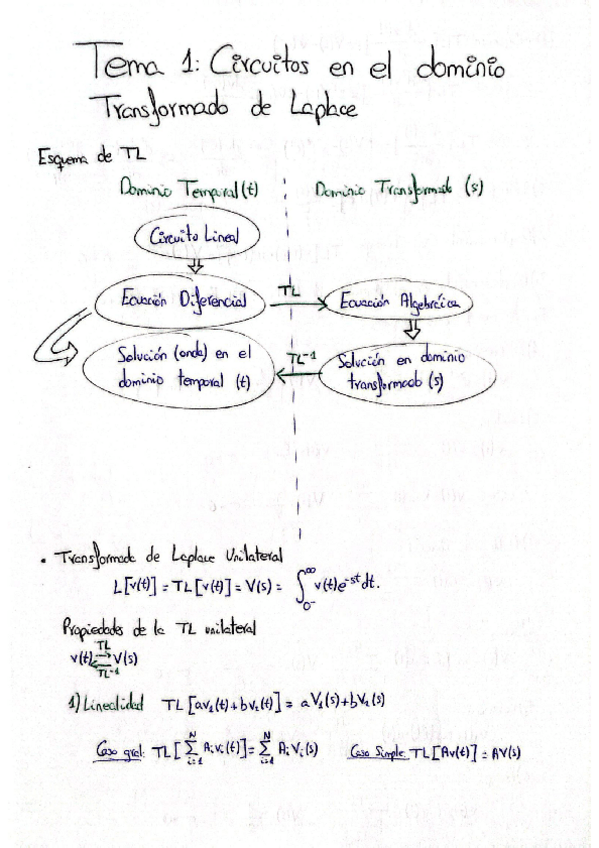 Tema 1: Circuitos en el dominio
Transformado de Laplace
Esquema de TL
Dominio Temporal (t)
Dominio Transformado (s)
Circuito Lineal
Ecuación Diferencial
TL
Ecuación Algebráica
Solución (onda) en el
dominio temporal (t)
TL-1
Solución en dominio
transformado (s)
• Transformada de Laplace Unilateral
L[v(t)] = TL[v(t)] = V(s) = ∫0-∞ v(t)e-st dt.
Propiedades de la TL unilateral
v(t) TL⇄TL-1 V(s)
1) Linealidad TL[av1(t)+bv2(t)] = aV1(s)+bV2(s)
Caso gral: TL[∑i=1N Aivi(t)] = ∑i=1N AiVi(s)
Caso Simple: TL[Av(t)] = AV(s)